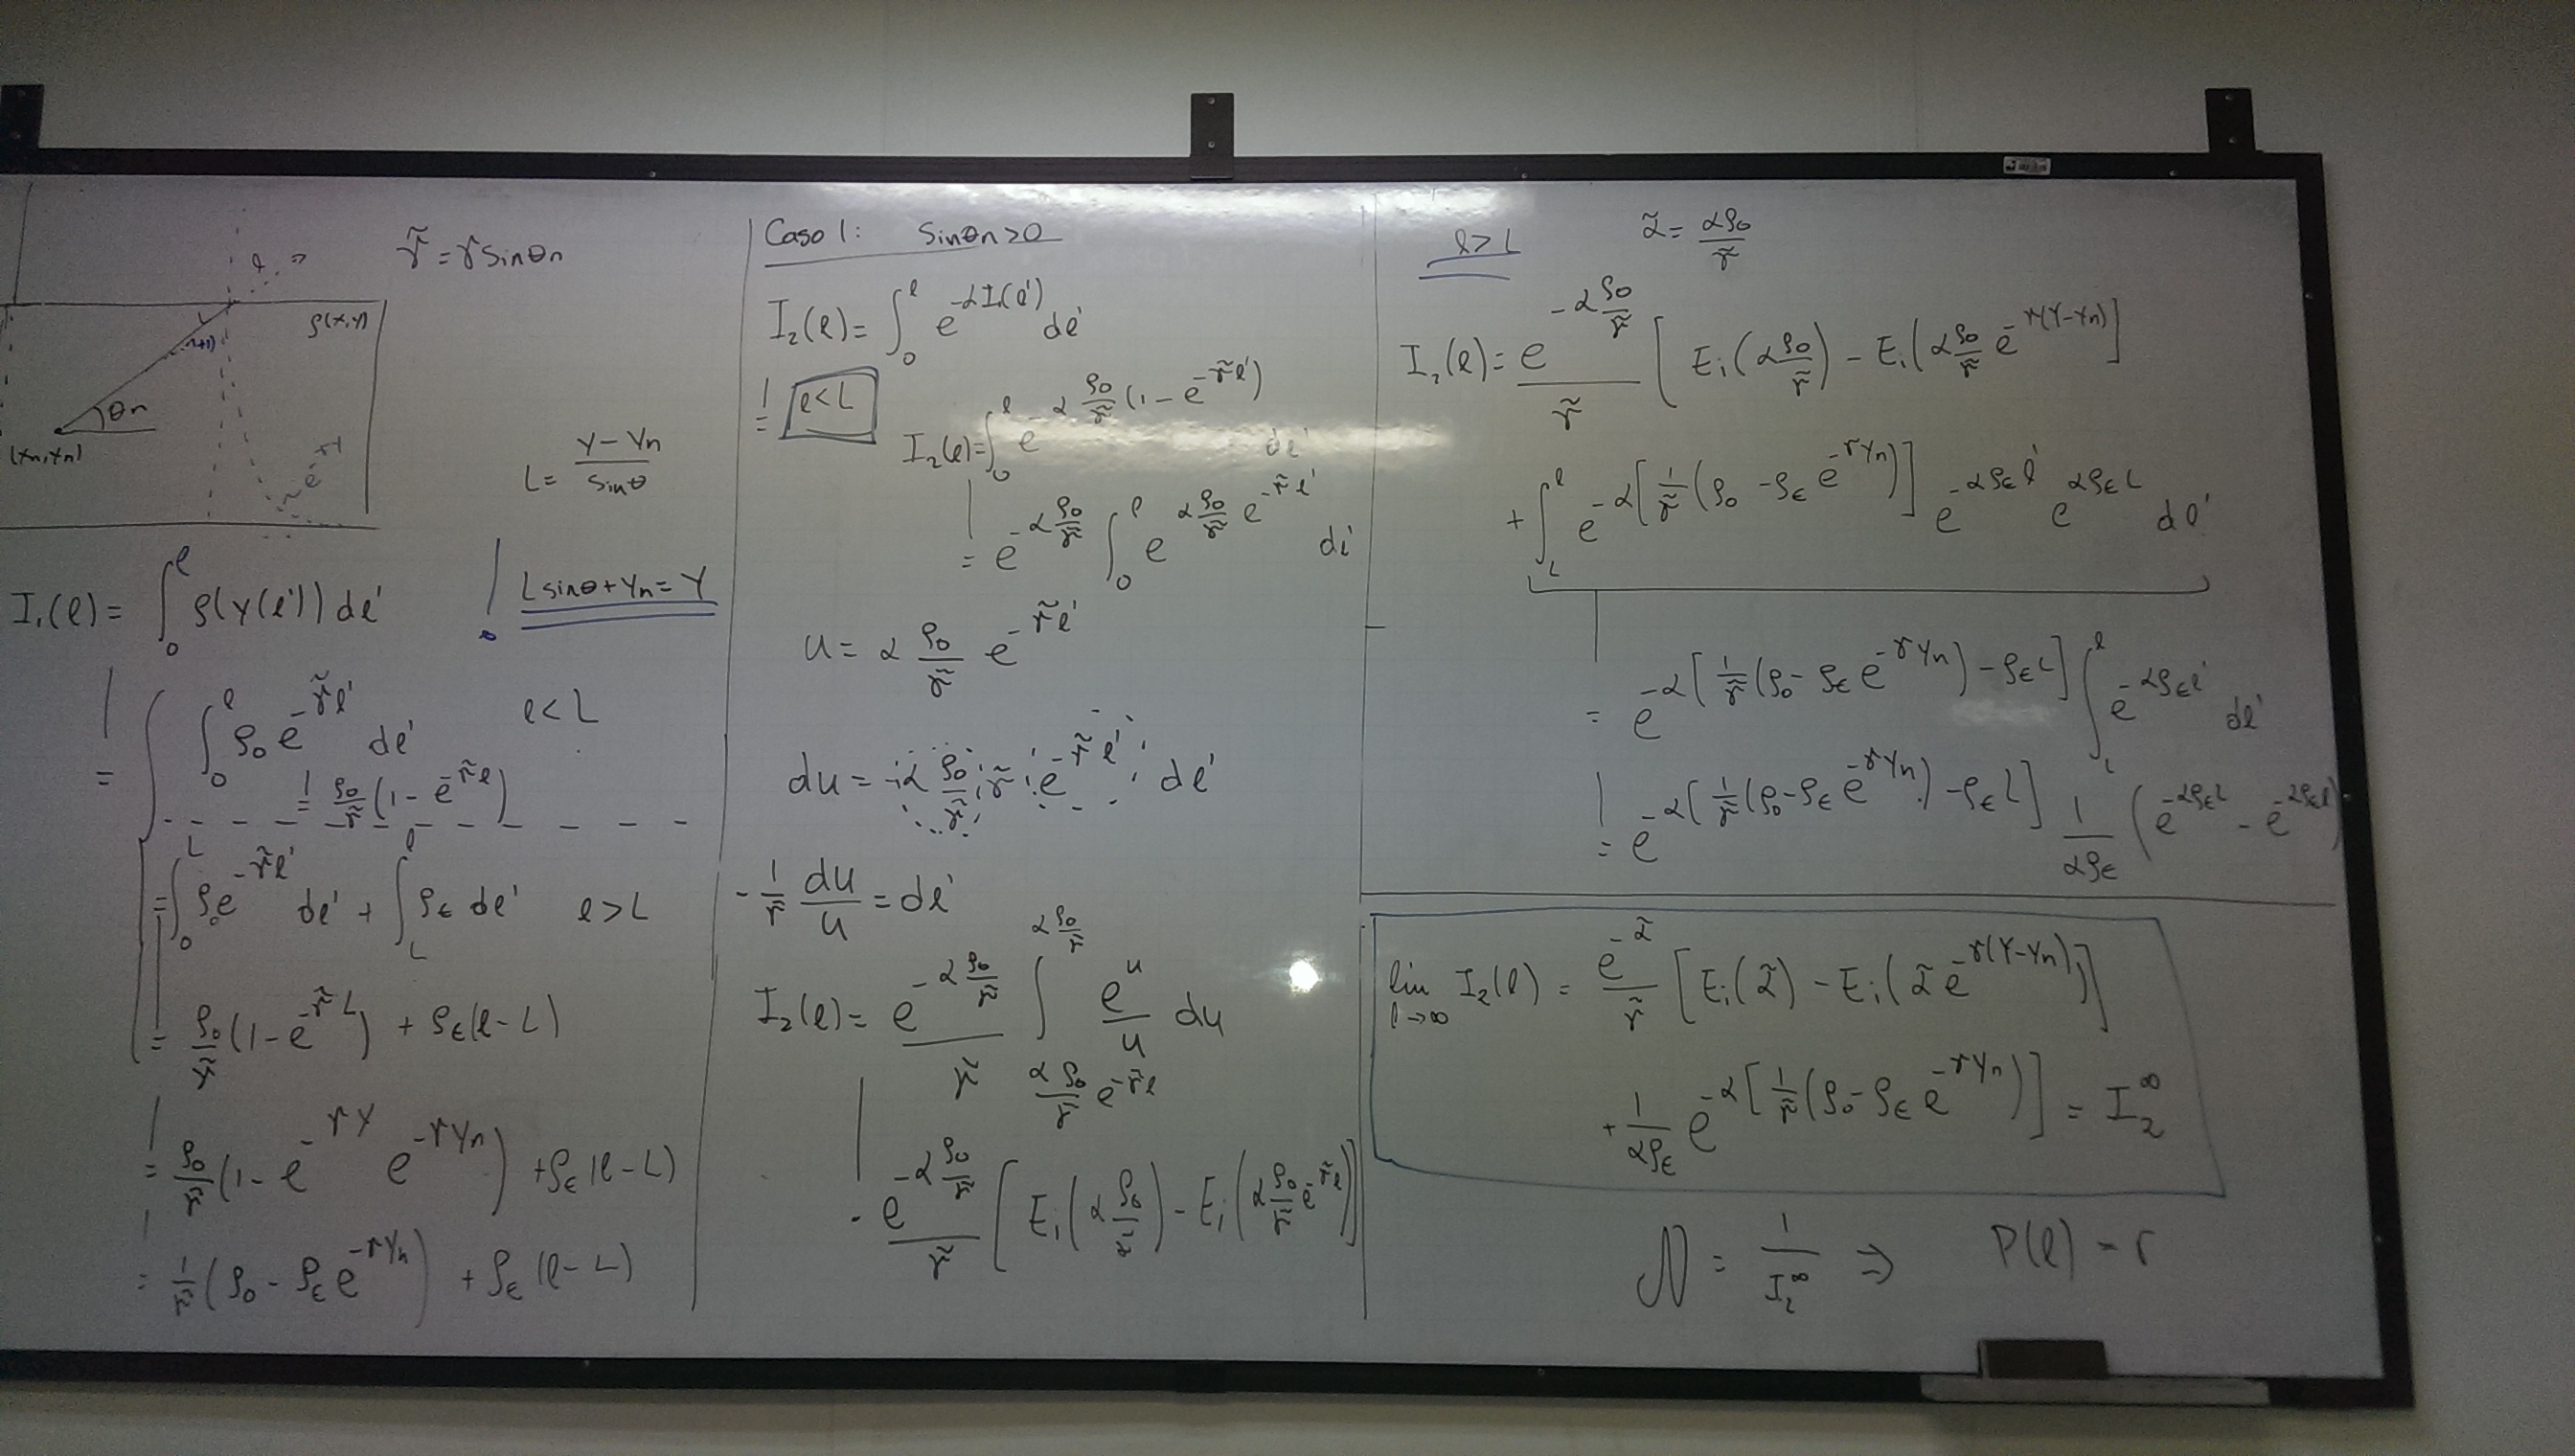 γ̃ = γ sinθn
ρ(x,y)
(n+1)
θn
(xn,yn)
e^{-γy}
L = (Y-Yn)/sinθ
I₁(ℓ) = ∫₀^ℓ ρ(y(ℓ')) dℓ'
L sinθ + Yn = Y
= ∫₀^ℓ ρ₀ e^{-γ̃ℓ'} dℓ' ℓ<L
= ρ₀/γ̃ (1 - e^{-γ̃ℓ})
= ∫₀^L ρ₀ e^{-γ̃ℓ'} dℓ' + ∫_L^ℓ ρ_ϵ dℓ' ℓ>L
= ρ₀/γ̃ (1 - e^{-γ̃L}) + ρ_ϵ(ℓ-L)
= ρ₀/γ̃ (1 - e^{-γY} e^{-γYn}) + ρ_ϵ(ℓ-L)
= 1/γ̃ (ρ₀ - ρ_ϵ e^{-γYn}) + ρ_ϵ(ℓ-L)
Caso 1: Sinθn>0
I₂(ℓ) = ∫₀^ℓ e^{-αI₁(ℓ')} dℓ'
= ℓ<L
I₂(ℓ) = ∫₀^ℓ e^{-α ρ₀/γ̃ (1 - e^{-γ̃ℓ'})} dℓ'
= e^{-α ρ₀/γ̃} ∫₀^ℓ e^{α ρ₀/γ̃ e^{-γ̃ℓ'}} dℓ'
u = α ρ₀/γ̃ e^{-γ̃ℓ'}
du = -α ρ₀/γ̃ γ̃ e^{-γ̃ℓ'} dℓ'
-1/γ̃ du/u = dℓ'
I₂(ℓ) = e^{-α ρ₀/γ̃}/γ̃ ∫_{α ρ₀/γ̃ e^{-γ̃ℓ}}^{α ρ₀/γ̃} e^u/u du
= e^{-α ρ₀/γ̃}/γ̃ [Ei(α ρ₀/γ̃) - Ei(α ρ₀/γ̃ e^{-γ̃ℓ})]
ℓ>L α̃ = αρ₀/γ̃
I₂(ℓ) = e^{-α ρ₀/γ̃}/γ̃ [Ei(α ρ₀/γ̃) - Ei(α ρ₀/γ̃ e^{-γ(Y-Yn)}]
+ ∫_L^ℓ e^{-α[1/γ̃ (ρ₀ - ρ_ϵ e^{-γYn})]} e^{-αρ_ϵℓ'} e^{αρ_ϵL} dℓ'
= e^{-α[1/γ̃ (ρ₀ - ρ_ϵ e^{-γYn}) - ρ_ϵL]} ∫_L^ℓ e^{-αρ_ϵℓ'} dℓ'
= e^{-α[1/γ̃ (ρ₀ - ρ_ϵ e^{-γYn}) - ρ_ϵL]} 1/(αρ_ϵ) (e^{-αρ_ϵL} - e^{-αρ_ϵℓ})
lim_{ℓ→∞} I₂(ℓ) = e^{-α̃}/γ̃ [Ei(α̃) - Ei(α̃ e^{-γ(Y-Yn)})]
+ 1/(αρ_ϵ) e^{-α[1/γ̃ (ρ₀ - ρ_ϵ e^{-γYn})]} = I₂^∞
N = 1/I₂^∞ ⇒ P(ℓ) = r